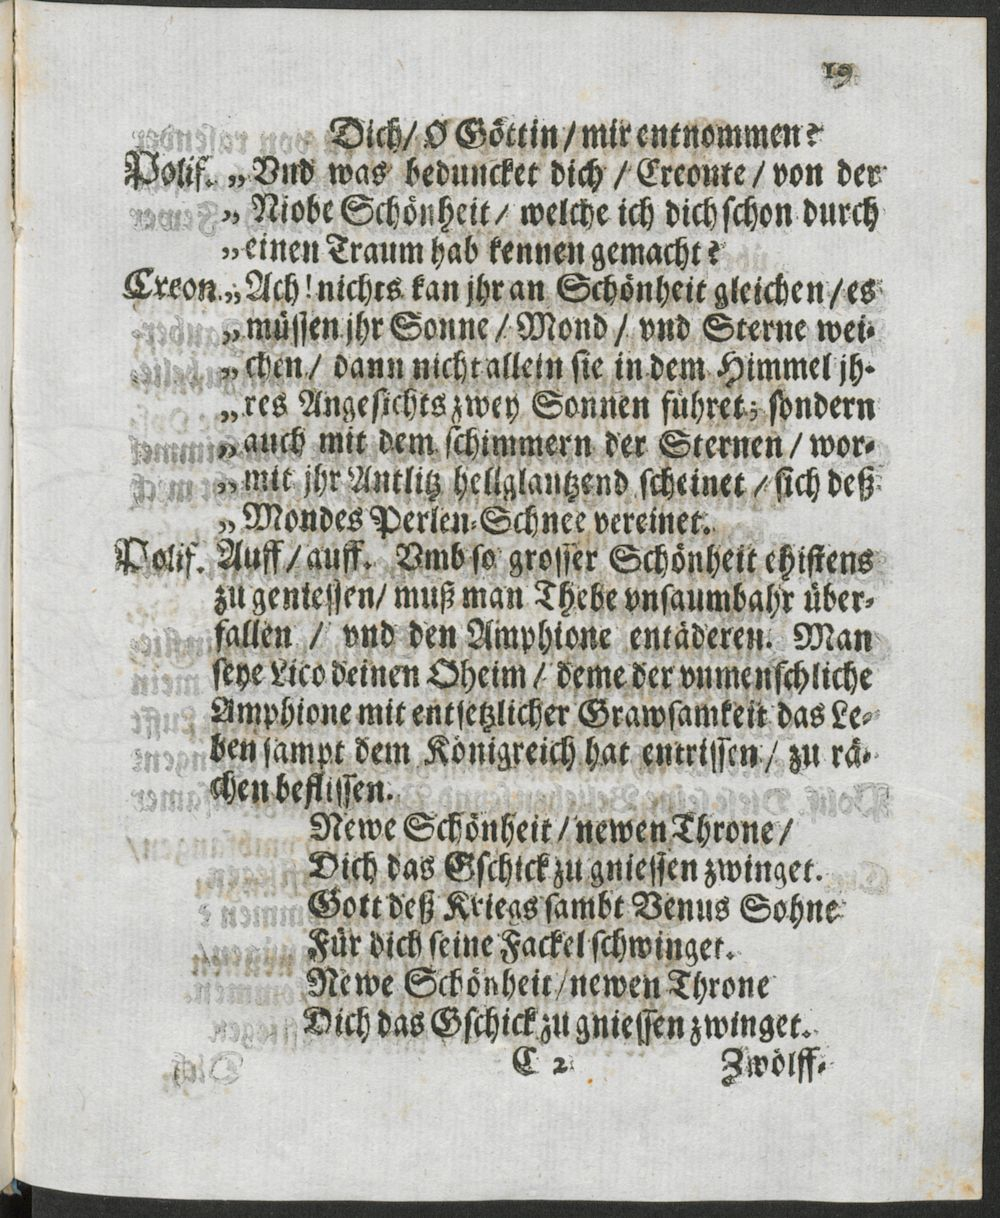 19
Dich/ O Göttin/ mir entnommen?
Polif. „ Vnd was beduncket dich / Creonte / von der
„ Niobe Schönheit/ welche ich dich schon durch
„ einen Traum hab kennen gemacht?
Creon. „ Ach! nichts kan jhr an Schönheit gleichen/ es
„ müssen jhr Sonne / Mond / vnd Sterne wei-
„ chen / dann nicht allein sie in dem Himmel jh-
„ res Angesichts zwey Sonnen führet; sondern
„ auch mit dem schimmern der Sternen / wor-
„ mit jhr Antlitz hellglantzend scheinet / sich deß
„ Mondes Perlen-Schnee vereinet.
Polif. Auff / auff. Vmb so grosser Schönheit ehistens
zu geniessen/ muß man Thebe vnsaumbahr über-
fallen / vnd den Amphione entäderen. Man
seye Lico deinen Oheim / deme der vnmenschliche
Amphione mit entsetzlicher Grawsamkeit das Le-
ben sampt dem Königreich hat entrissen / zu rä-
chen beflissen.
Newe Schönheit / newen Throne /
Dich das Gschick zu gniessen zwinget.
Gott deß Kriegs sambt Venus Sohne
Für dich seine Fackel schwinget.
Newe Schönheit / newen Throne
Dich das Gschick zu gniessen zwinget.
C 2 Zwölff-